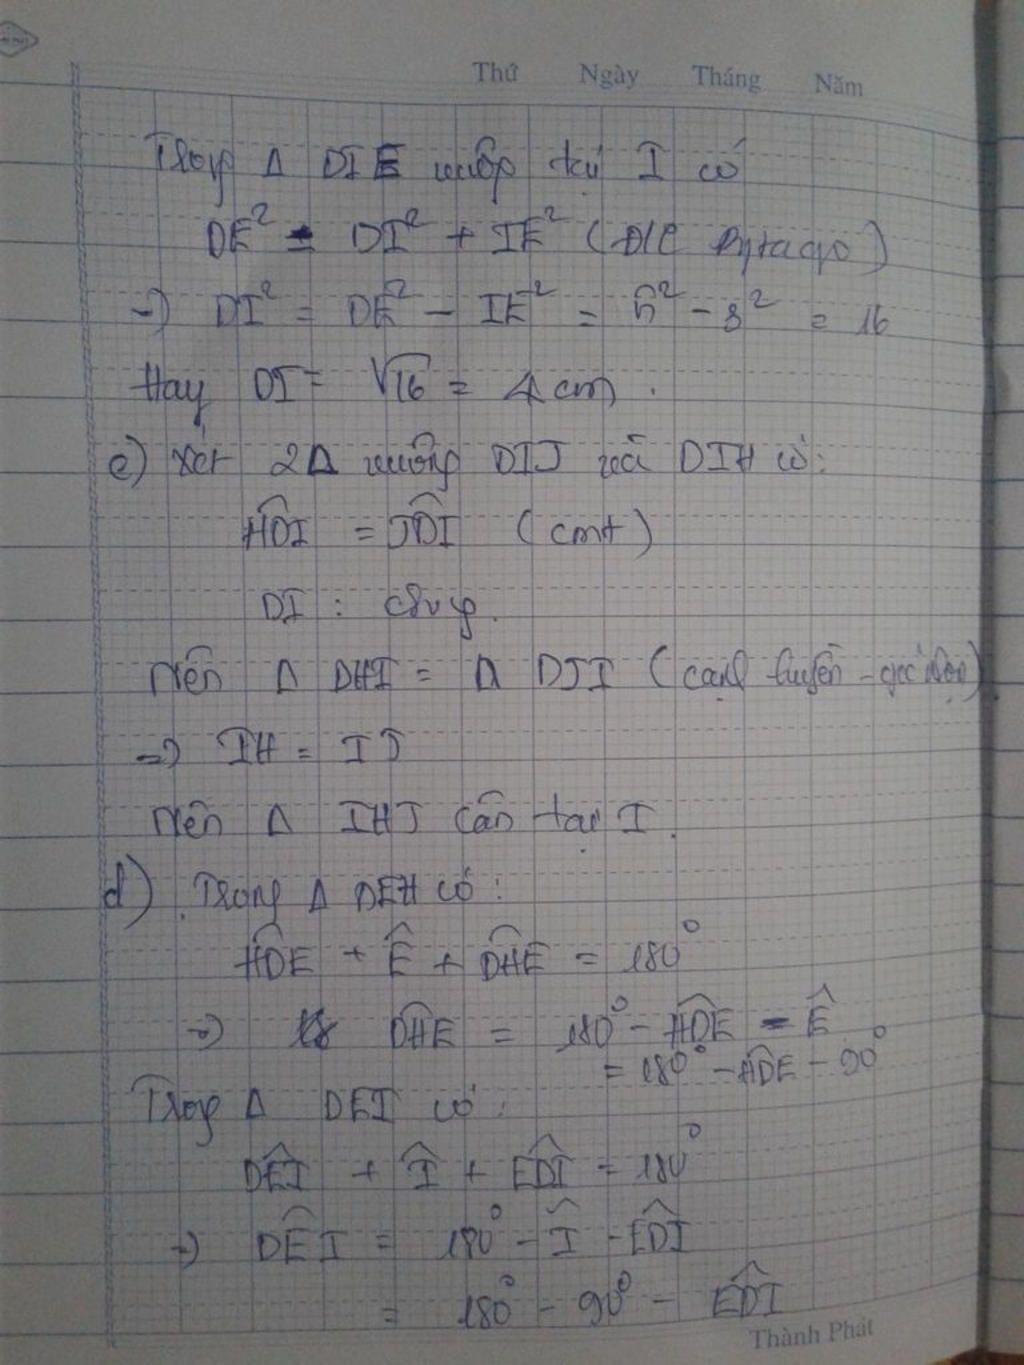 Thứ Ngày Tháng Năm
Trong Δ DIE vuông tại I có
DE² = DI² + IE² (Đ/l Pytago)
=> DI² = DE² - IE² = 5² - 3² = 16
Hay DI = √16 = 4 cm.
c) Xét 2Δ vuông DIJ và DIH có:
HDI = JDI (cmt)
DI : chung.
Nên Δ DHI = Δ DJI (cạnh huyền - góc nhọn)
=> IH = IJ
Nên Δ IHJ cân tại I.
d) Trong Δ DEH có:
HDE + Ê + DHE = 180°
=> DHE = 180° - HDE - Ê
= 180° - HDE - 90°
Trong Δ DEI có:
DEI + Î + EDI = 180°
=> DEI = 180° - Î - EDI
= 180° - 90° - EDI
Thành Phát